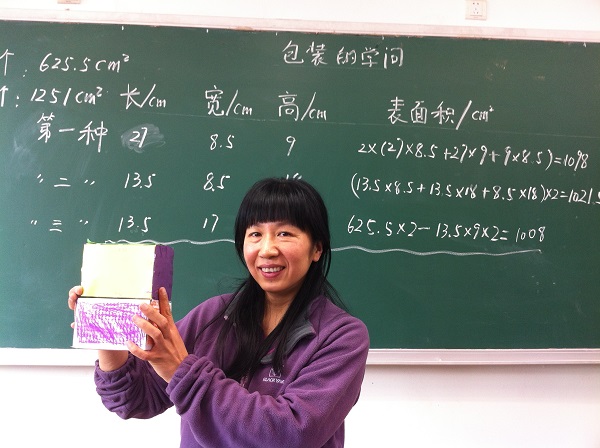 包装的学问
个: 625.5cm²
个: 1251cm² 长/cm 宽/cm 高/cm 表面积/cm²
第一种 27 8.5 9 2×(27×8.5+27×9+9×8.5)=1098
〃 二 〃 13.5 8.5 (13.5×8.5+13.5×18+8.5×18)×2=1021.5
〃 三 〃 13.5 17 625.5×2-13.5×9×2=1008